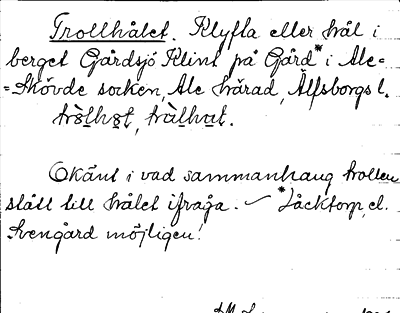 Trollhålet. Klyfta eller hål i
berget Gårdsjö Klint på Gård* i Ale-
=Skövde socken, Ale härad, Älfsborgs l.
Okänt i vad sammanhang trollen
stått till hålet ifråga. *Låcktorp, el.
Svengård möjligen!